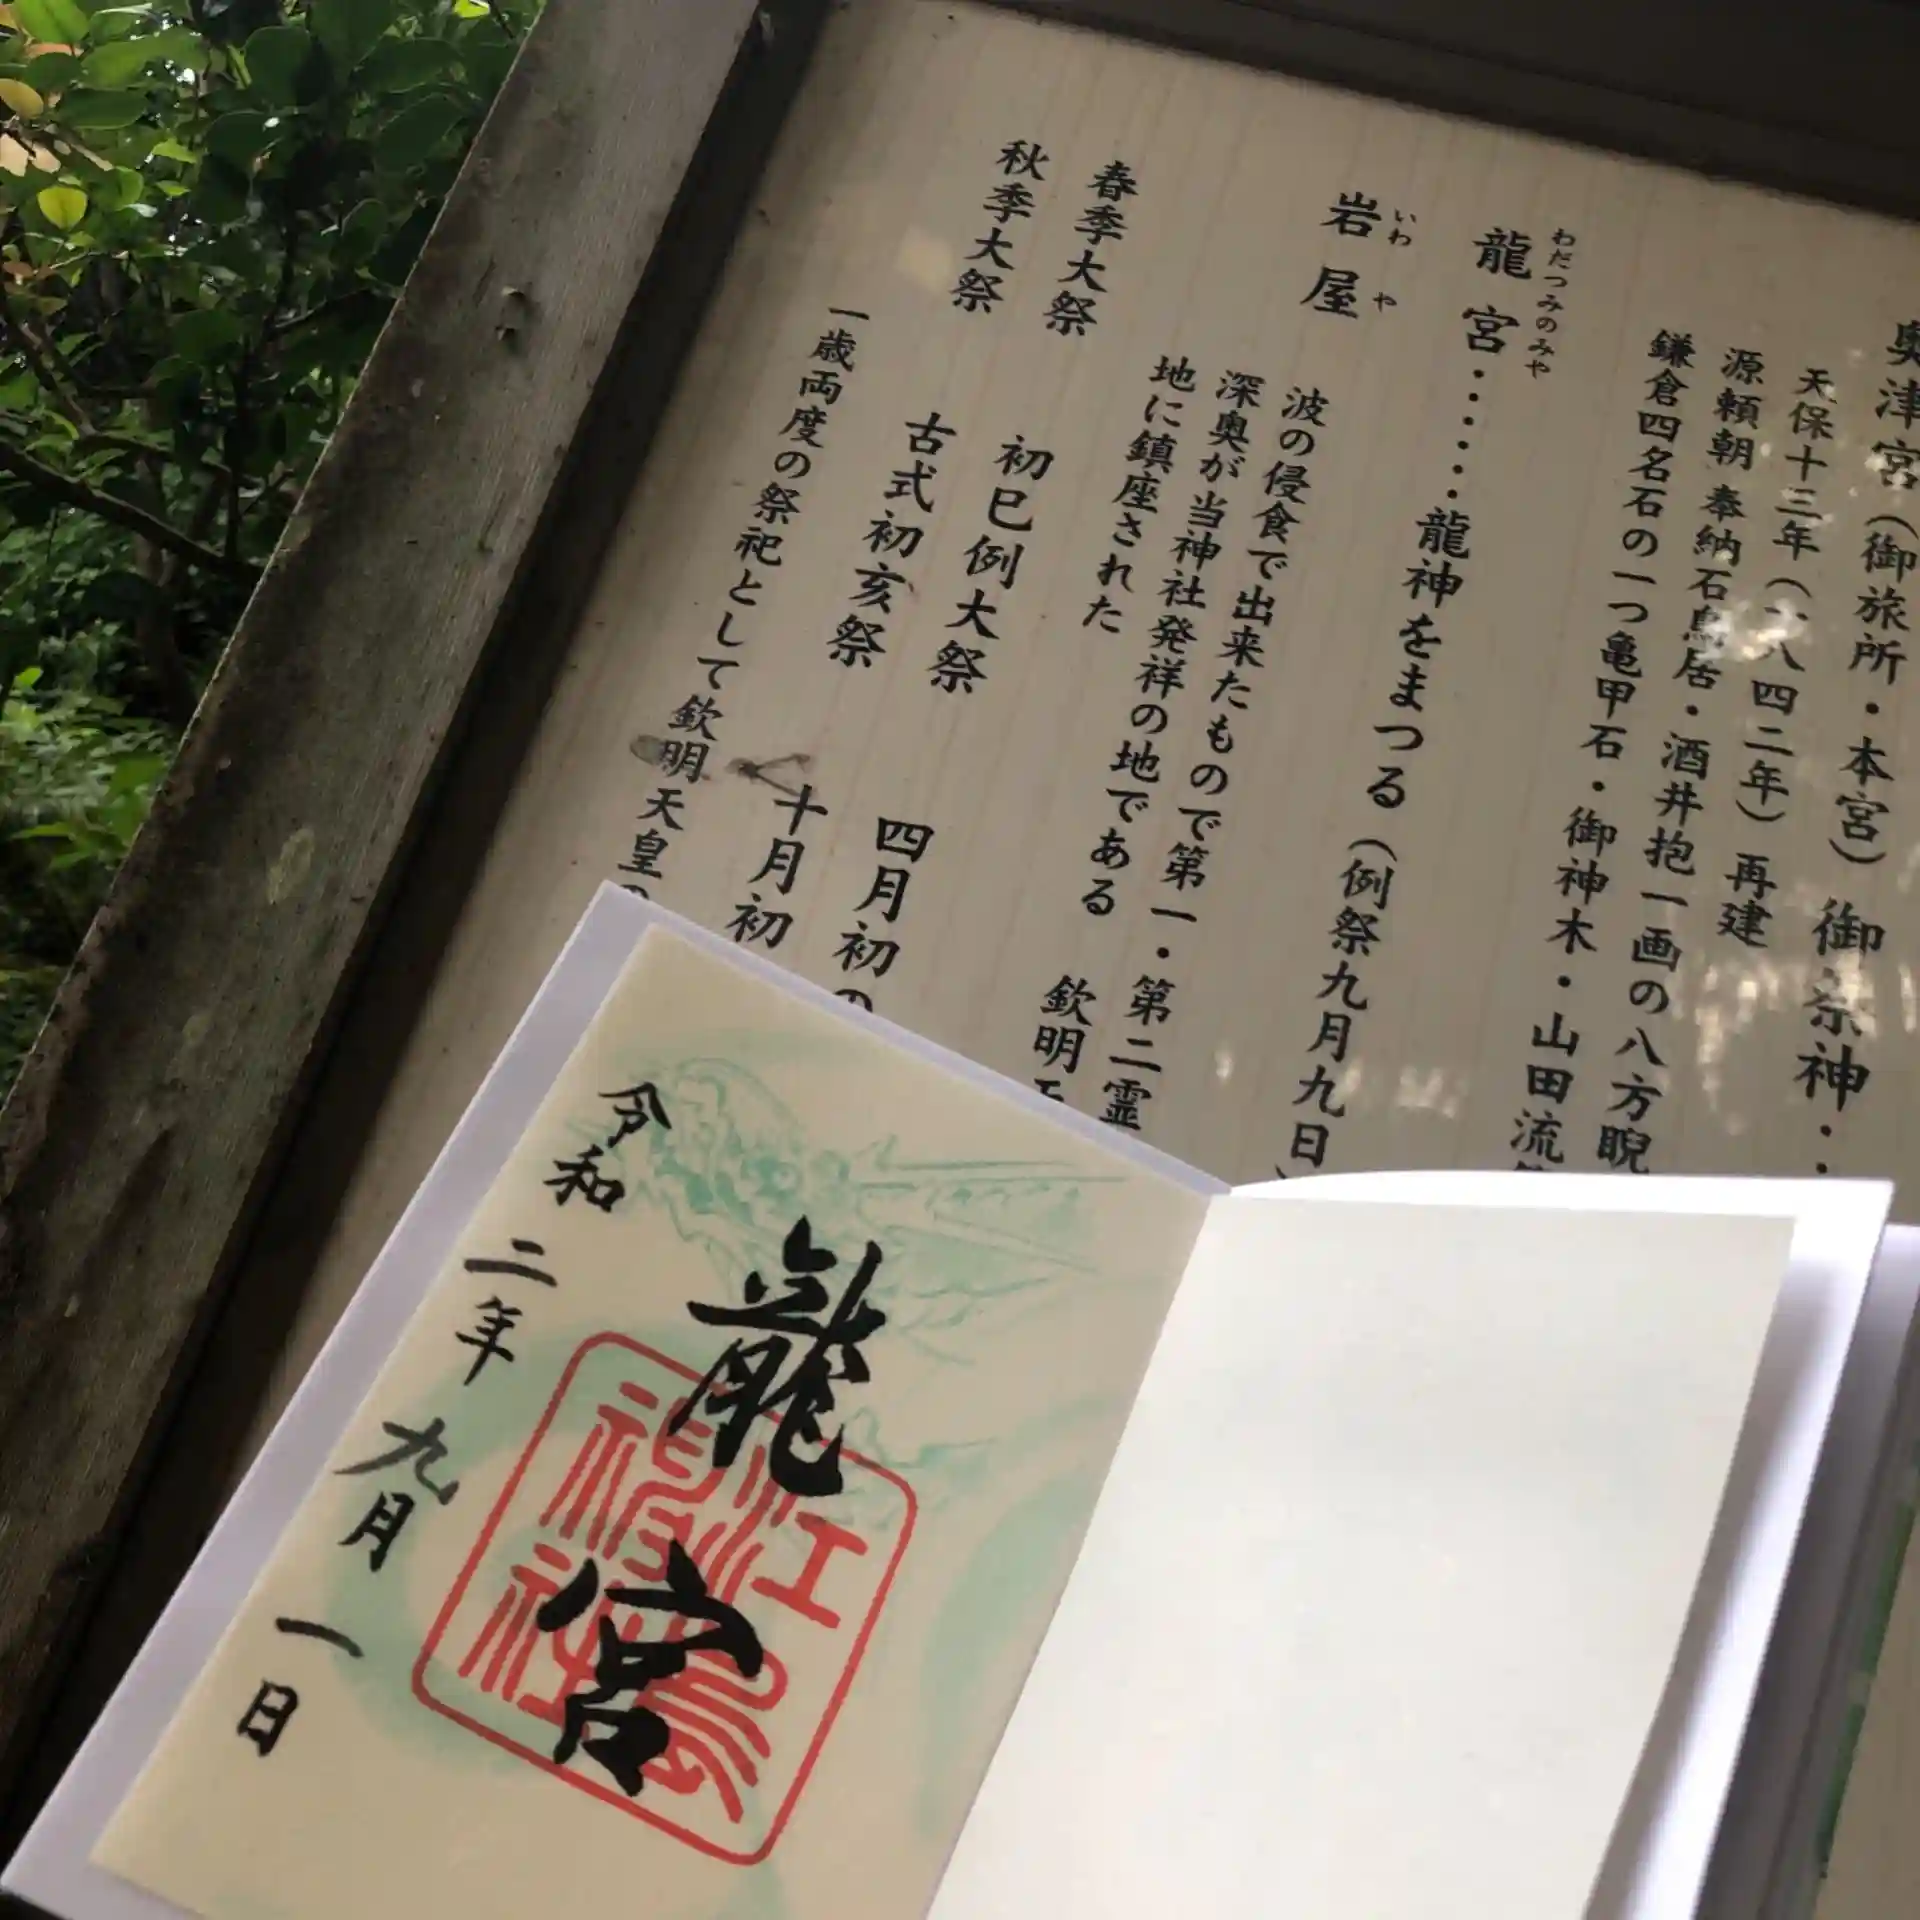 奥津宮（御旅所・本宮）御祭神・・
天保十三年（一八四二年）再建
源頼朝 奉納石鳥居・酒井抱一画の八方睨
鎌倉四名石の一つ亀甲石・御神木・山田流
わだつみのみや
龍宮・・・・・龍神をまつる（例祭九月九日）
いわや
岩屋
波の侵食で出来たもので第一・第二霊
深奥が当神社発祥の地である 欽明
地に鎮座された
春季大祭 初巳例大祭 四月初の
秋季大祭 古式初亥祭 十月初
一歳両度の祭祀として欽明天皇の
龍宮
江島神社
令和二年九月一日